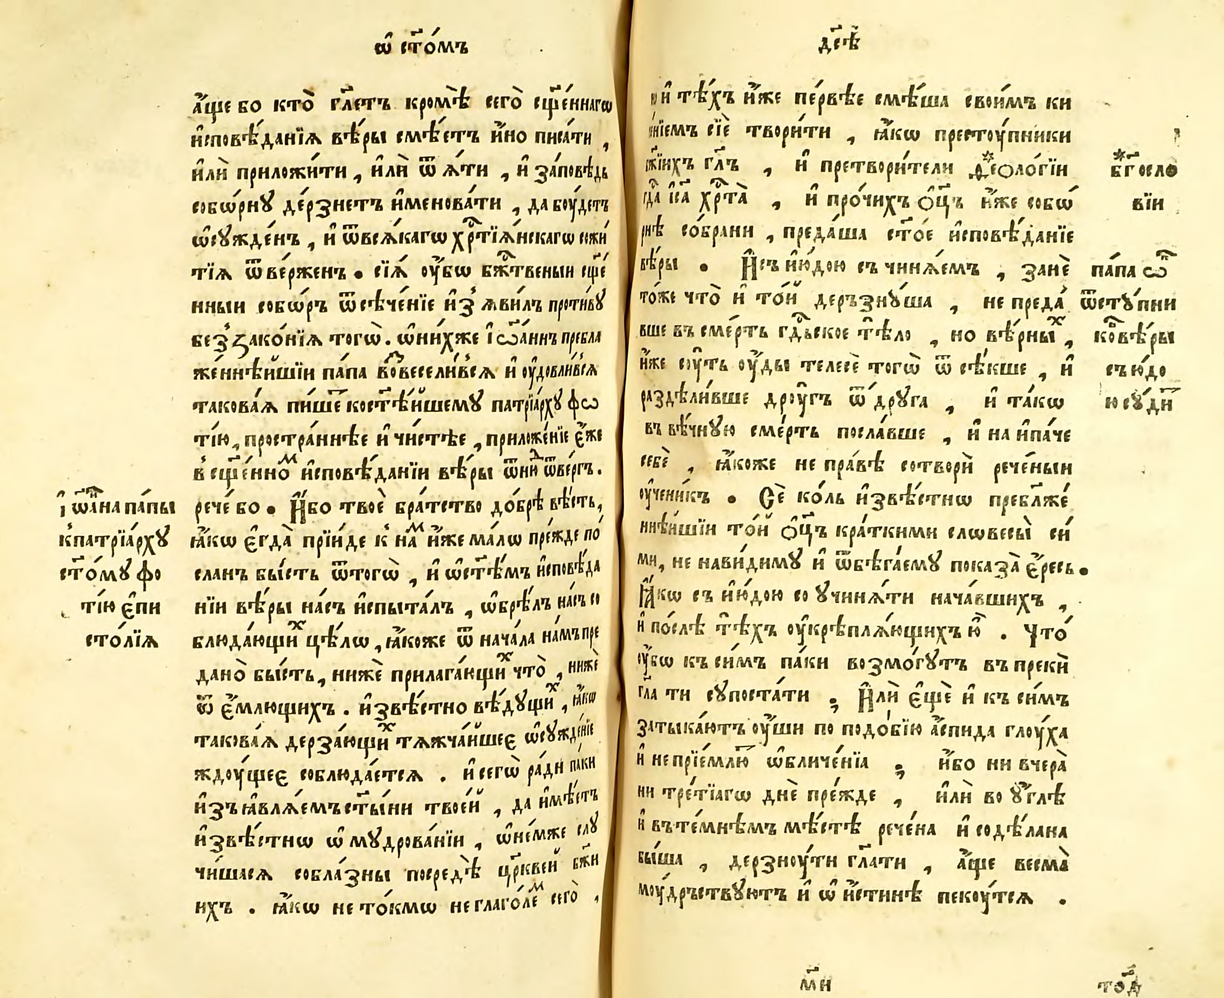 ѡ҆ ст҃о́мъ
а҆́ще бо кто̀ гл҃етъ кромѣ̀ сего̀ сщ҃е́ннагѡ
и҆сповѣ́данїѧ вѣ́ры смѣ́етъ и҆́но писа́ти ,
и҆лѝ приложи́ти , и҆лѝ ѿ ѧ́ти , и҆ за́повѣдь
собѡ́рнꙋ де́рзнетъ и҆менова́ти , да бꙋ́детъ
ѡ҆сꙋжде́нъ , и҆ ѿвсѧ́кагѡ хрⷭ҇тїѧ́нскагѡ сожи
тїѧ ѿве́рженъ . сїѧ̀ ᲂу҆́бѡ бж҃твеныи сщ҃е
нныи собѡ́ръ ѿсѣче́нїе и҆з̾ ѧ҆ви́лъ проти́вꙋ
без̾ зако́нїѧ тогѡ̀ . ѡ҆ни́хже і҆ѡа́ннъ пребла
же́ннѣишїи па́па во́звеселивсѧ и҆ ᲂу҆довли́всѧ
такова́ѧ пи́шетъ кост҃ѣ́ишемꙋ патрїа́рхꙋ фѡ
тїю , простра́ннѣе и҆ чи́стѣе , приложе́нїе є҆́же
в̾ сщ҃е́нномъ и҆сповѣ́данїи вѣ́ры ѿни́дъ ѿве́ргъ .
рече́ бо . И҆́бо твоѐ бра́тство до́брѣ вѣ́сть ,
ꙗ҆́кѡ є҆гда̀ прїи́де к̾ на́мъ и҆́же ма́лѡ пре́жде по́
сланъ бы́сть ѿтогѡ̀ , и҆ ѡ҆ст҃ѣ́мъ и҆сповѣ́да
нїи вѣ́ры на́съ и҆спыта́лъ , ѡ҆брѣ́лъ на́съ со
блюда́ющихъ цѣ́лѡ , ꙗ҆́коже ѿ нача́ла на́мъ пре
дано̀ бы́сть , нижѐ прилага́ющихъ что̀ , нижѐ
ѿ є҆́млющихъ . и҆звѣ́стно вѣ́дꙋщихъ , ꙗ҆́кѡ
такова́ѧ дерза́ющихъ тѧжча́йшее ѡ҆сꙋжде́нїе
ждꙋ́щее соблюда́етсѧ . и҆ сегѡ̀ ра́ди па́ки
и҆зъѧвлѧ́емъ ст҃ы́ни твое́й , да и҆мѣ́етъ
и҆звѣ́стнѡ ѡ҆ мꙋдрова́нїи , ѡ҆не́мже слꙋ
чи́шасѧ собла́зны посредѣ̀ цр҃кве́й бж҃и
ихъ . ꙗ҆́кѡ не то́кмѡ не глаго́лемъ сего̀ ,
І҆ѡ҆а́на па́пы
к̾патрїа́рхꙋ
ст҃о́мꙋ фо
тїю є҆пи
сто́лїѧ
дс҃ѣ
и҆ тѣ́хъ и҆́же пе́рвѣе смѣ́ша свои́мъ ки
нїемъ сїѐ твори́ти , ꙗ҆́кѡ престꙋ́пники
бж҃їихъ гл҃ъ , и҆ претвори́тели ѳеоло́гїи
гдⷭ҇а і҆с҃а хрⷭ҇та̀ , и҆ про́чихъ ѻ҆ц҃ъ и҆́же собѡ́
рнѣ со́брани , преда́ша ст҃о́е и҆сповѣ́данїе
вѣ́ры . И҆ съ и҆ю́дою съчинѧ́емъ , занѐ
то́же что̀ и҆ то́й дерзнꙋ́ша , не преда́
вше въ сме́рть гдⷭ҇ьское тѣ́ло , но вѣ́рныхъ ,
и҆́же сꙋ́ть ᲂу҆́ды телесѐ тогѡ̀ ѿ сѣ́кше , и҆
раздѣли́вше дрꙋ́гъ ѿ дрꙋ́га , и҆ та́кѡ
въ вѣ́чнꙋю сме́рть посла́вше , и҆ на и҆па́че
себѐ , ꙗ҆́коже не пра́вѣ сотворѝ рече́ныи
ᲂу҆чени́къ . Сѐ ко́ль и҆звѣ́стнѡ преблж҃е́
ннѣ́йшїи то́й ѻ҆ц҃ъ кра́ткими словесы̀ си́
ми , не нави́димꙋ и҆ ѿбѣга́емꙋ показа̀ є҆́ресь .
Ꙗ҆́кѡ съ и҆ю́дою со ᲂучинѧ́ти нача́вшихъ ,
и҆ по́слѣ тѣ́хъ ᲂу҆крѣплѧ́ющихъ ю҆̀ . Что́
ᲂу҆́бѡ къ си́мъ па́ки возмо́гꙋтъ въпрекѝ
гл҃а ти сꙋпоста́ти ; И҆лѝ є҆щѐ и҆ къ си́мъ
затыка́ютъ ᲂу҆́ши по подо́бїю а҆́спида глꙋ́ха
и҆ непрїе́млютъ ѡ҆бличе́нїа ; и҆́бо ни вчера̀
ни тре́тїагѡ днѐ пре́жде , и҆лѝ во ᲂу҆́глѣ
и҆ въ те́мнѣмъ мѣ́стѣ рече́на и҆ содѣ́лана
бы́ша , дерзнꙋ́ти гл҃ати , а҆́ще весма̀
мꙋ́дрьствꙋютъ и҆ ѡ҆ и҆́стинѣ пекꙋ́тсѧ .
бг҃осло
вїи
па́па ѿ
ѿстꙋ́пни
ко́въ вѣ́ры
съ ию́до
ю сꙋ́дитъ